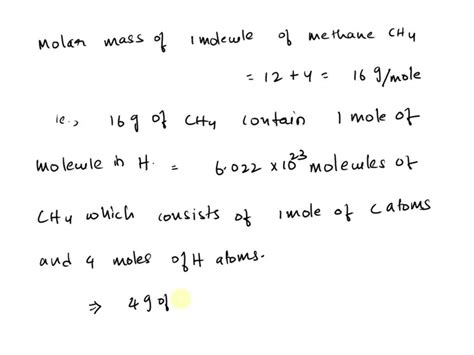 Molar mass of 1 molecule of methane CH4
= 12 + 4 = 16 g/mole
ie., 16 g of CH4 contain 1 mole of
molecule in H. = 6.022 × 10^23 molecules of
CH4 which consists of 1 mole of C atoms
and 4 moles of H atoms.
⇒ 4g of